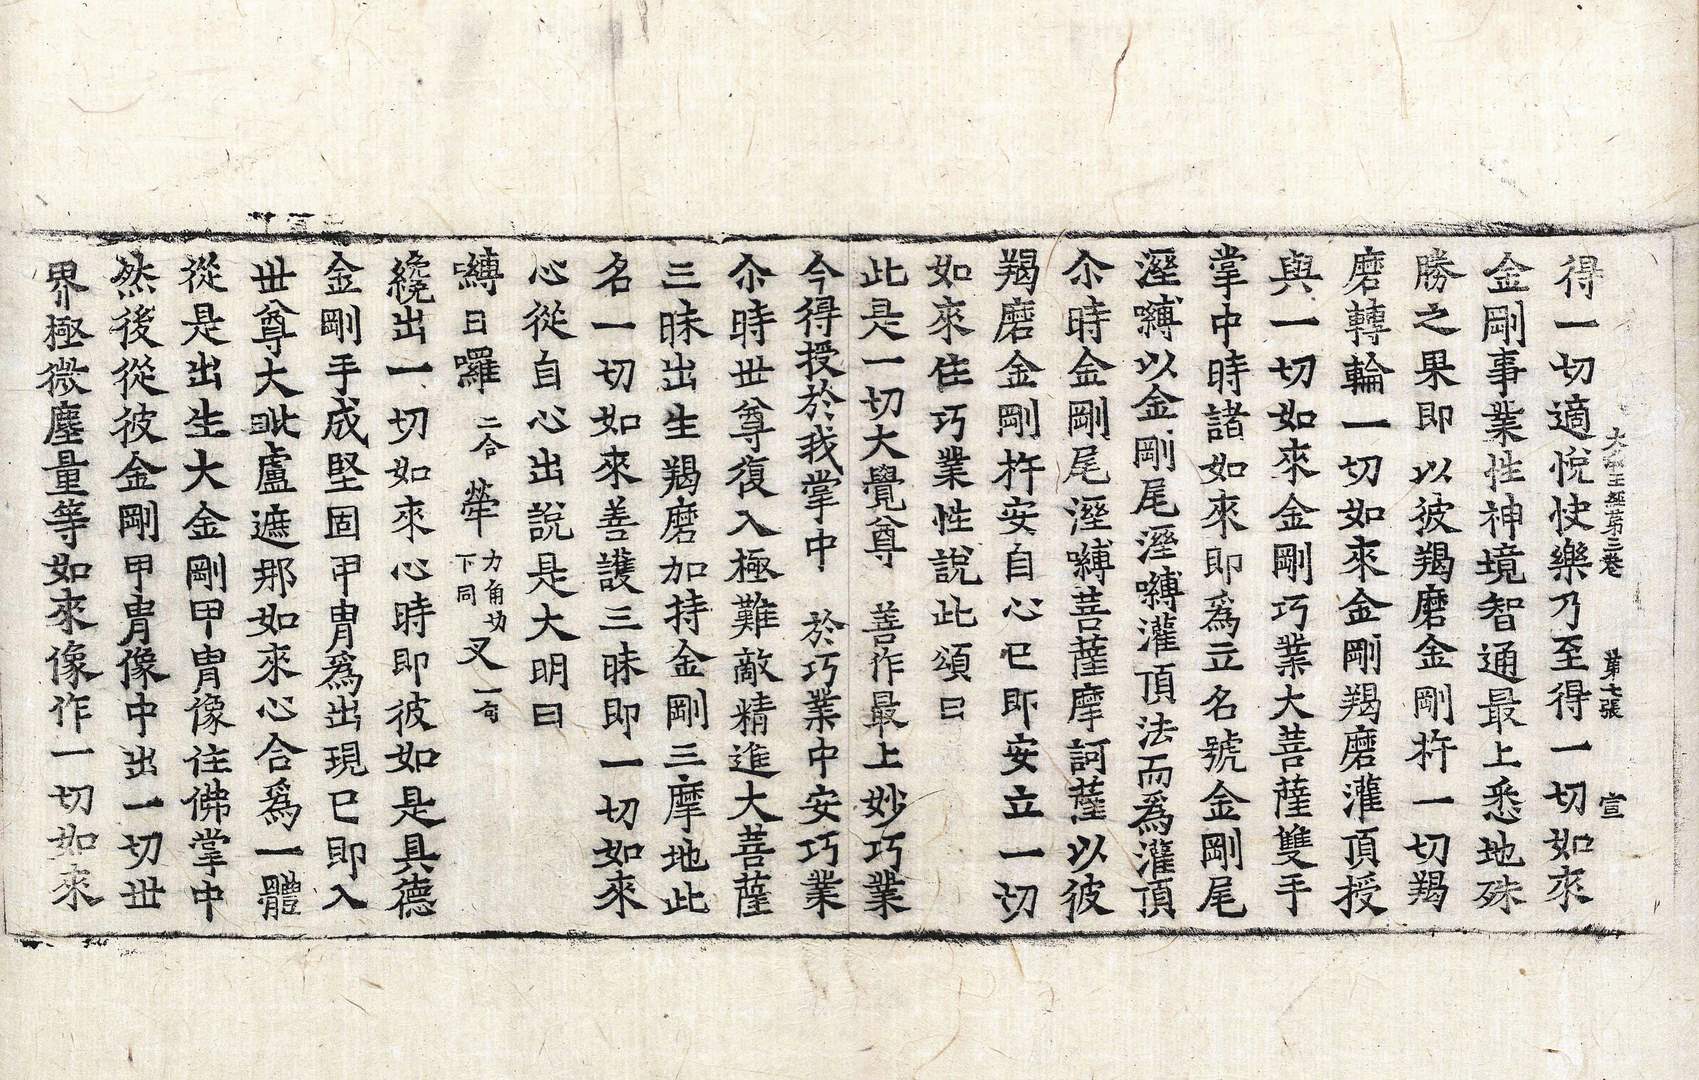 大教王經第三卷 第七張 宣
得一切適悅快樂乃至得一切如來
金剛事業性神境智通最上悉地殊
勝之果即以彼羯磨金剛杵一切羯
磨轉輪一切如來金剛羯磨灌頂授
與一切如來金剛巧業大菩薩雙手
掌中時諸如來即為立名號金剛尾
溼嚩以金剛尾溼嚩灌頂法而為灌頂
尒時金剛尾溼嚩菩薩摩訶薩以彼
羯磨金剛杵安自心已即安立一切
如來住巧業性說此頌曰
此是一切大覺尊 善作最上妙巧業
今得授於我掌中 於巧業中安巧業
尒時世尊復入極難敵精進大菩薩
三昧出生羯磨加持金剛三摩地此
名一切如來善護三昧即一切如來
心從自心出說是大明曰
嚩日囉二合犖力角切下同叉一句
纔出一切如來心時即彼如是具德
金剛手成堅固甲冑為出現已即入
世尊大毗盧遮那如來心合為一體
從是出生大金剛甲冑像住佛掌中
然後從彼金剛甲冑像中出一切世
界極微塵量等如來像作一切如來